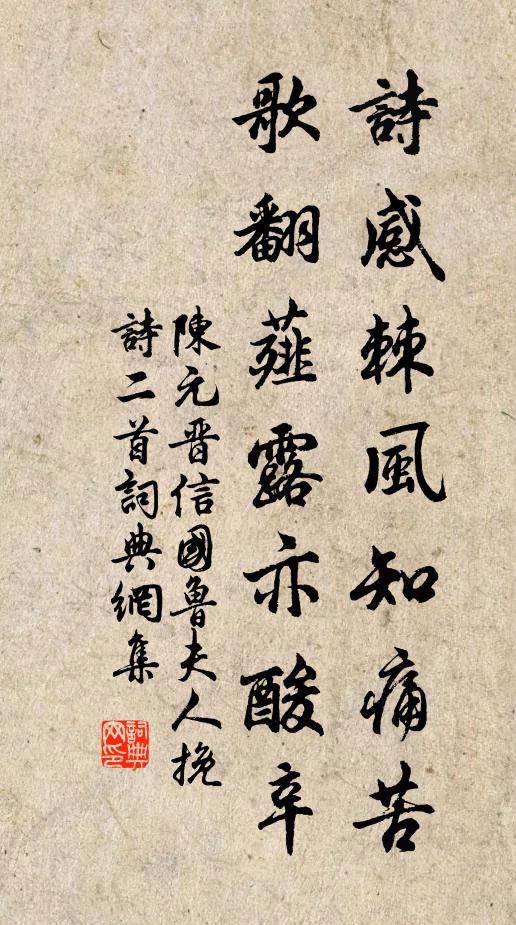 詩感棘風知痛苦
歌翻薤露亦酸辛
陳元晋信國魯夫人挽
詩二首詞典網集
詞典網印